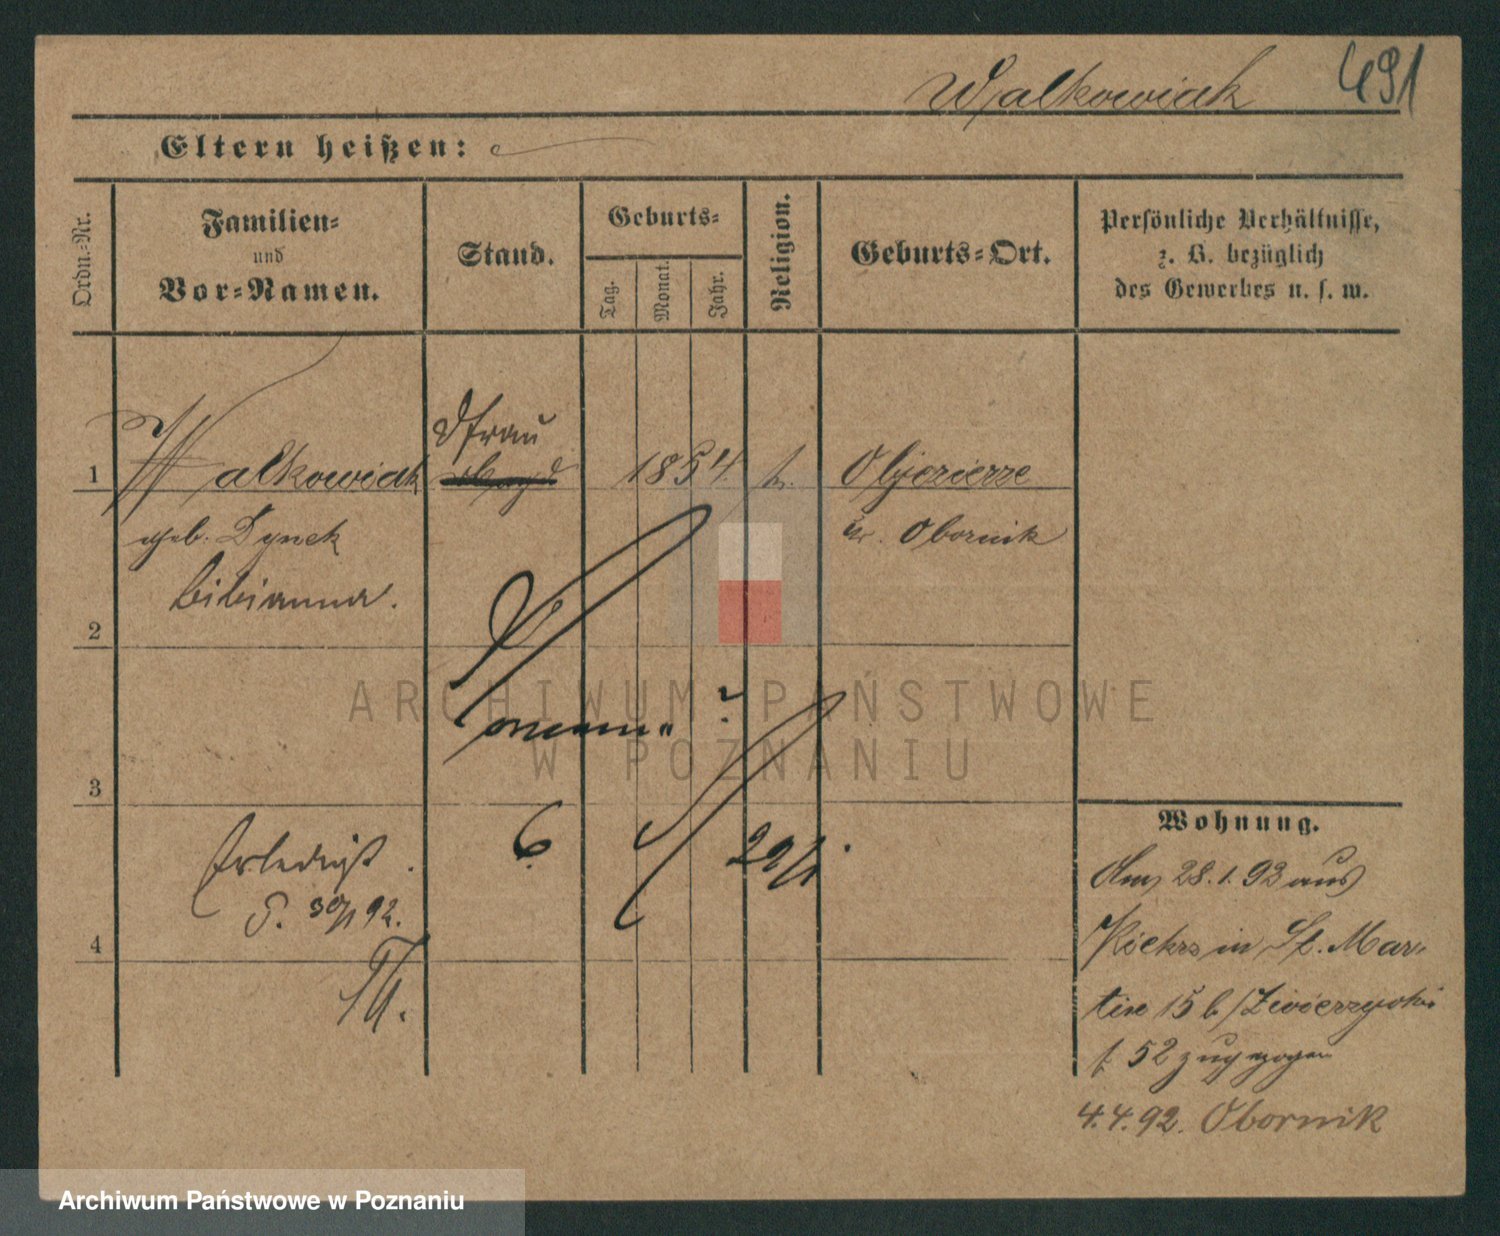 Walkowiak 491
Eltern heißen:
Ordn.=Nr.
Familien=
und
Vor=Namen.
Stand.
Geburts=
Tag.
Monat.
Jahr.
Religion.
Geburts=Ort.
Persönliche Verhältnisse,
z. B. bezüglich
des Gewerbes u. s. w.
frau
1 Walkowiak 1854 k. Objezierze
geb. Dynek Kr. Obornik
Bibianna.
2
3
Erledigt.
30/1 92.
4
6.
22/1
Wohnung.
Am 28.1.92 aus
Kiekrz in St. Mar-
tin 15 b/Zwierzycki
f 52 zugezogen
4.4.92. Obornik
ARCHIWUM PAŃSTWOWE
W POZNANIU
Archiwum Państwowe w Poznaniu